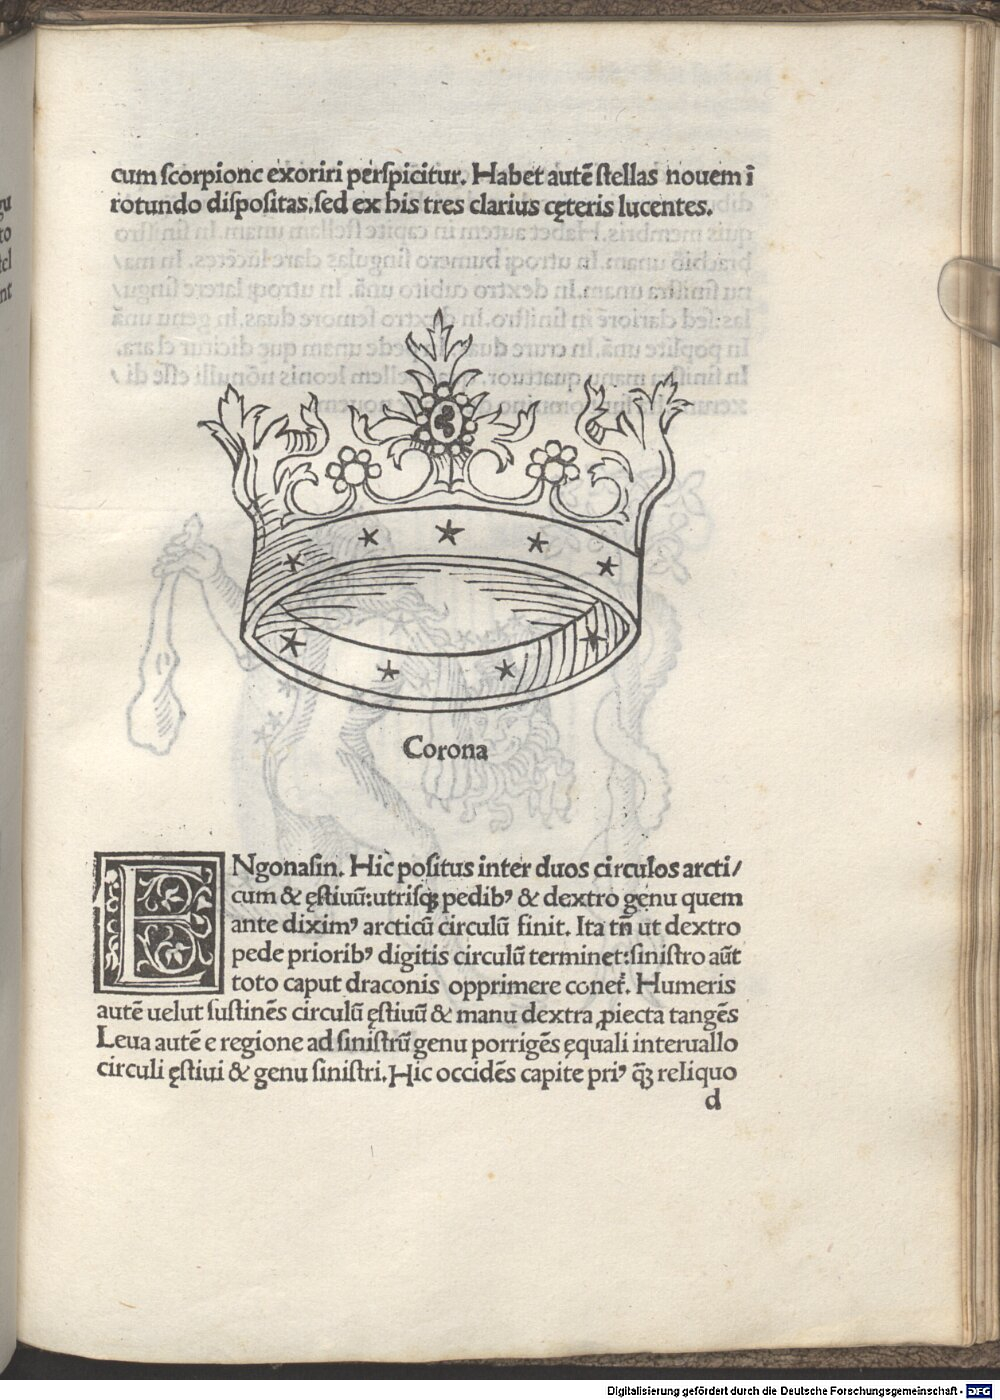 cum scorpione exoriri perspicitur. Habet autē stellas nouem ī
rotundo dispositas.sed ex his tres clarius cęteris lucentes.
Corona
ENgonasin. Hic positus inter duos circulos arcti/
cum & ęstiuū:utrisqꝫ pedibꝰ & dextro genu quem
ante diximꝰ arcticū circulū finit. Ita tn̄ ut dextro
pede prioribꝰ digitis circulū terminet:sinistro aūt
toto caput draconis opprimere conet̄. Humeris
autē uelut sustinēs circulū ęstiuū & manu dextra ꝓiecta tangēs
Leua autē e regione ad sinistrū genu porrigēs ęquali interuallo
circuli ęstiui & genu sinistri. Hic occidēs capite priꝰ q̄ꝫ reliquo
d
gu
to
tel
nt
Digitalisierung gefördert durch die Deutsche Forschungsgemeinschaft - DFG